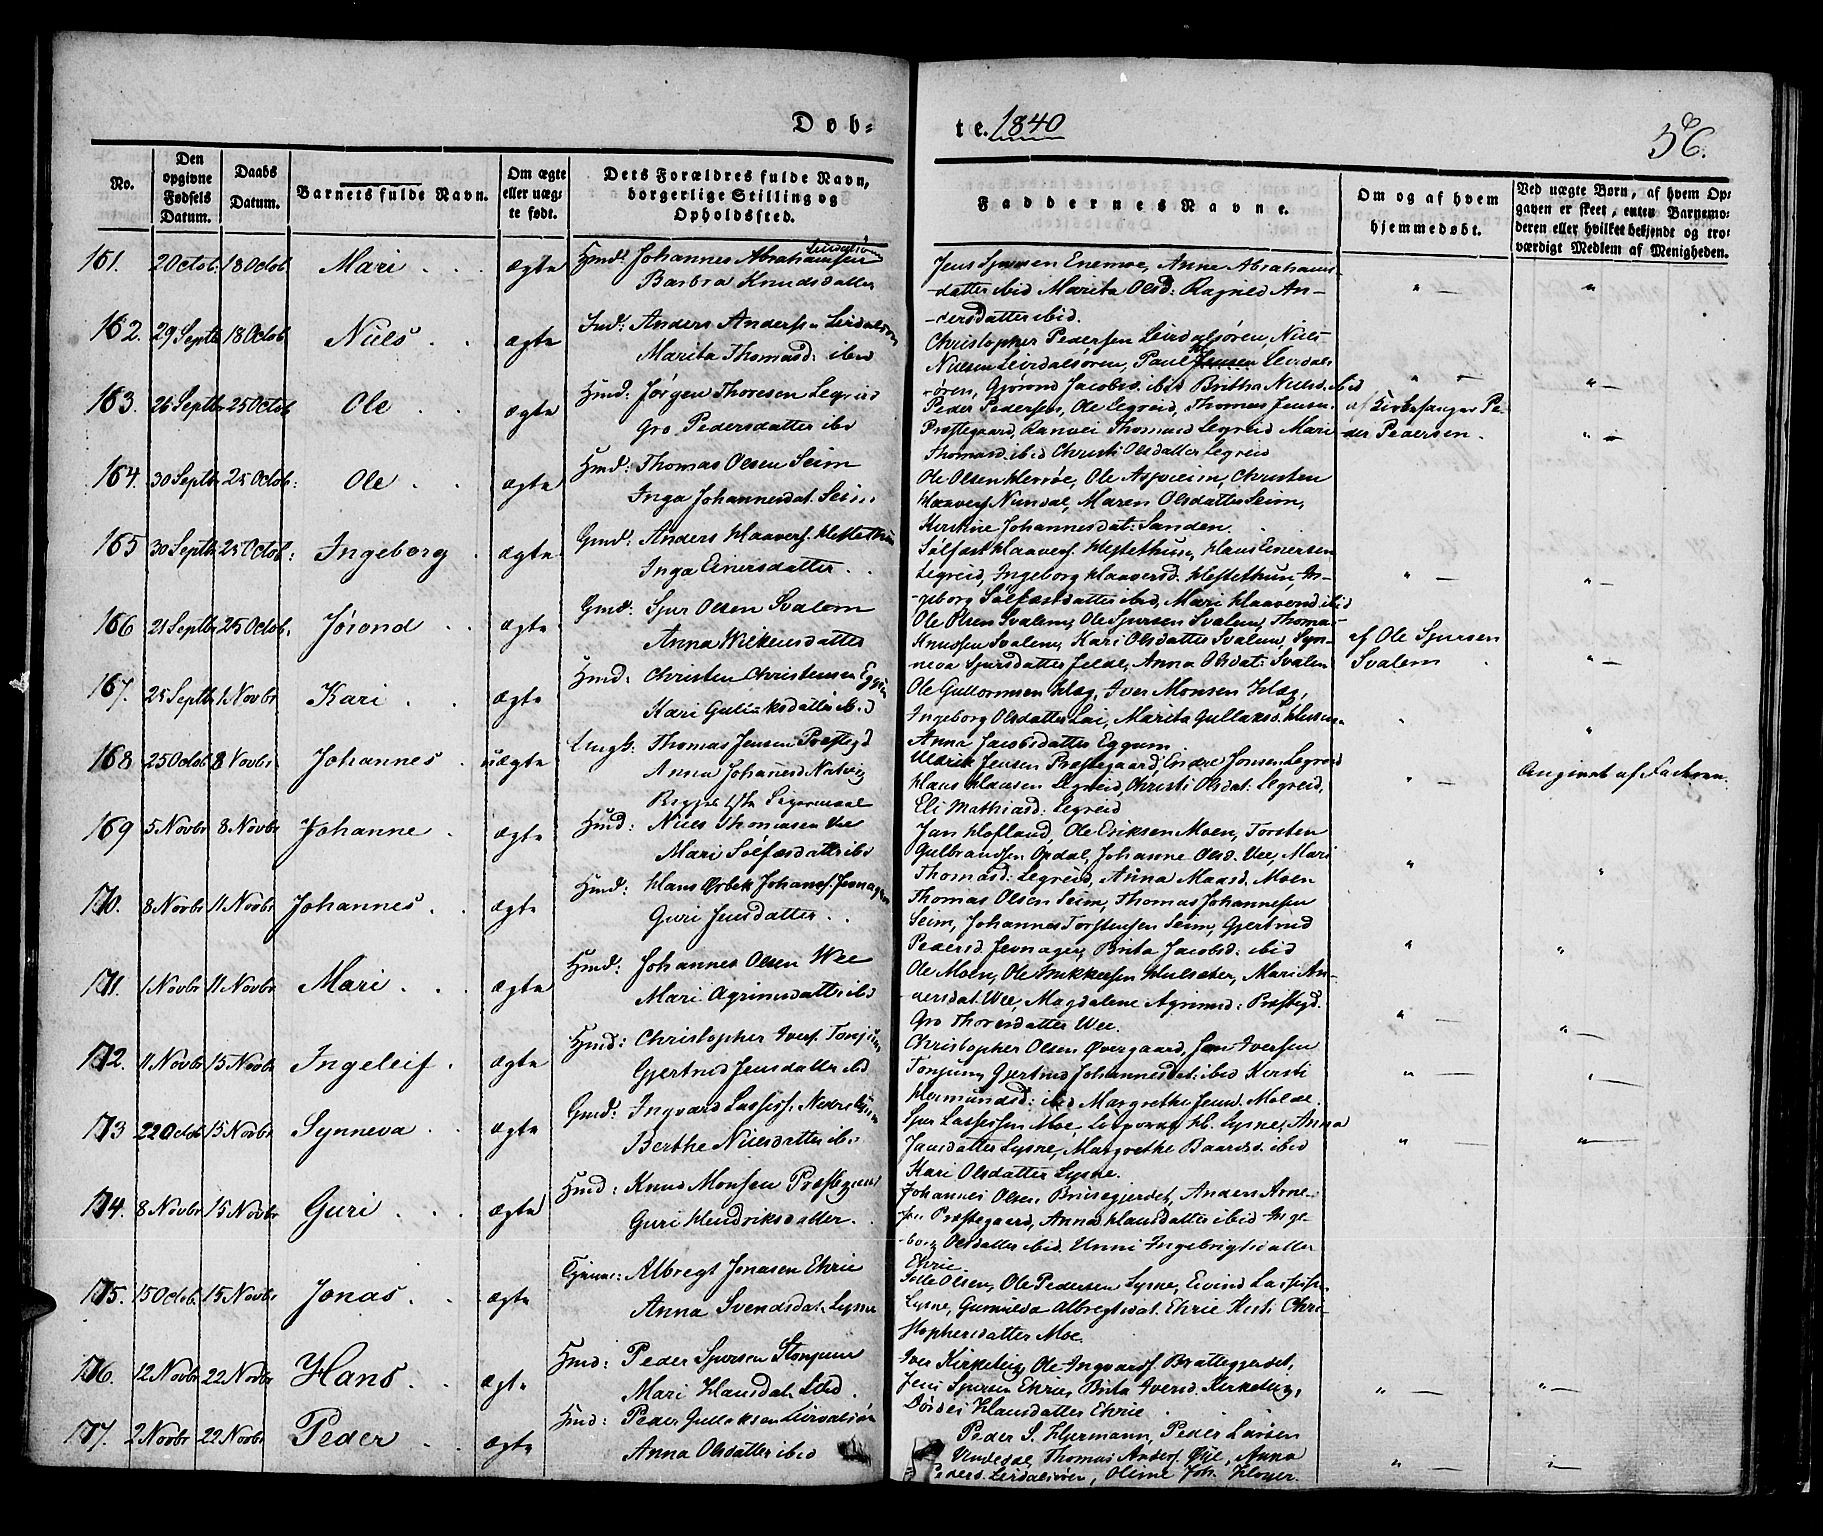 Døb-
te. 1840
56.
No.
Den opgivne Fødsels Datum.
Daabs Datum.
Barnets fulde Navn.
Om ægte eller uægte født.
Dets Forældres fulde Navn, borgerlige Stilling og Opholdssted.
Faddernes Navne.
Om og af hvem hjemmedøbt.
Ved uægte Børn, af hvem Opgaven er skeet, enten Barnemoderen eller hvilket bekjendt og troværdigt Medlem af Menigheden.
161. 2 Octob. 18 Octob Mari ægte Hmd: Johannes Abrahamsen
Barbra Knudsdatter
Anne Abrahams-
-datter ibid Marita Olsd: Ragned An-
-dersdatter ibid.
162. 29 Septb 18 Octob Niels ægte Ind: Anders Andersen Leirdalsøren
Marita Thomasd: ibid
Christopher Pedersen Leirdalsøren, Niels
Nielsen Leirdalsøren, Paul Jensen Leirdals-
-øren, Gjørond Jacobs. ibid Britha Nielsd. ibid
163. 26 Septbr 25 Octob Ole ægte Hmd: Jørgen Thoresen Legreid
Gro Pedersdatter ibd
Peder Pedersen, Ole Legreid, Thomas Jensen
Præstegaard, Ranvei Thomasd Legreid Mari
Thomasd. ibid Christi Olsdatter Legreid
af Kirkesanger Pe-
der Pedersen.
164. 30 Septbr 25 Octob: Ole ægte Hmd: Thomas Olsen Seim
Inga Johannesdat. Seim
Ole Olsen Ole Christen
Haavers Nundal, Maren Olsdatter Seim,
Kirstine Johannesdat: Sanden.
165 30 Septb 25 Octob: Ingeborg ægte Gmd: Anders Haavers. Hestethun
Inga Einersdatter
Sølfæst Haavers. Hestethun, Hans Einersen
Legreid, Ingeborg Haaversd. Hestethun, In-
-geborg Sølfæstdatter ibid, Mari Haaversd ibid
166 21 Septbr 25 Octob. Jørond ægte Gmd: Sjur Olsen Svalem
Anna Wikensdatter
Ole Olsen Svalem, Ole Sjursen Svalem, Thomas
Knudsen Svalem, Kari Olsdatter Svalem, Syn-
neva Sjursdatter Jelde, Anna Olsdat: Svalem
af Ole Sjursen
Svalem
167. 25 Septb 1 Novbr Kari ægte Hmd: Christen Christensen Eggum
Kari Gullaksdatter ibid
Ole Gullormsen Hæg, Iver Monsen Hæg,
Ingeborg Olsdatter Lai, Marita Gullaksd.
Anna Jacobsdatter Eggum
168 25 Octob 8 Novbr Johannes uægte Ungk: Thomas Jensen Præstegd
Anna Johanesd Natvig
Begges 1ste Leiermaal
Ulrik Jensen Præstegaard, Endre Jonsen Legreid
Hans Hansen Legreid, Christi Olsdat: Legreid,
Eli Mathiasd. Legreid
Angivet af Faderen.
169 5 Novbr 8 Novbr Johanne ægte Hmd: Niels Thomasen Vee
Mari Sølfæsdatter ibd
Jan Hofland, Ole Eriksen Moen, Torsten
Gulbrandsen Opdal, Johanne Olsd. Vee, Mari
Thomasd: Legreid, Anna Maasd. Moen
170. 8 Novbr 11 Novbr Johannes ægte Hmd: Hans Ørbek Johans. Jernager
Guri Jensdatter
Thomas Olsen Seim, Thomas Johannesen
Seim, Johannes Torstensen Seim, Gjertrud
Pedersd Jernager, Brita Jacobsd. ibid
171. 1 Novbr 11 Novbr Mari ægte Hmd: Johannes Olsen Wee
Mari Agrimsdatter ibd
Ole Moen, Ole Mari An-
-dersdat. Wee, Magdalene Agrimsd: Præstegd.
Gro Thoresdatter Wee.
172. 11 Novbr 15 Novbr Ingeleif ægte Hmd: Christopher Ivers. Tonjum
Gjertrud Jensdatter ibd
Christopher Olsen Øvregaard, Jen Iversen
Tonjum, Gjertrud Johannesdat: ibid Kirsti
Hermundsd: ibid Margrethe Jensd. Molde.
173 22 Octob 15 Novbr Synneva ægte Gmd: Ingvard Lasses.
Berthe Nielsdatter ibd
Sjur Lassessen Moe, Lysne, Anna
Jansdatter Lysne, Margrethe Baardsd. ibid
Kari Olsdatter Lysne.
174. 8 Novbr 15 Novbr Guri ægte Hmd: Knud Monsen Præstegaard
Guri Hendriksdatter.
Johannes Olsen Brusegjerdet, Anders Arne-
sen Præstegaard, Anna Hansdatter ibid Inge-
-borg Olsdatter ibid. Unni Ingebrigtsdatter
Ehrie.
175. 15 Octob. 15 Novbr Jonas ægte Tjener: Albregt Jonasen Ehrie
Anna Svendsdat. Lysne
Olsen, Ole Pedersen Lysne, Eivind Lasses.
Lysne, Gunnilda Albregtsdat. Ehrie Kirsti Chri-
stophersdatter Moe.
176. 12 Novbr 22 Novbr Hans ægte Hmd: Peder Sjursen Stonjum
Mari Hansdat. Sted.
Iver Kirkeleig, Ole Ingvards. Brattegjerdet,
Jens Sjursen Ehrie, Brita Iversd. Kirkeleig,
Dordei Hansdatter Ehrie
177. 2 Novbr 22 Novbr Peder ægte Hmd: Peder Gullaksen Leirdalsøren
Anna Olsdatter ibid
Peder S. Hjermann, Peder Larsen
Thomas Anders. Øye, Anna
Peders. Leirdalsøren, Oline Joh.